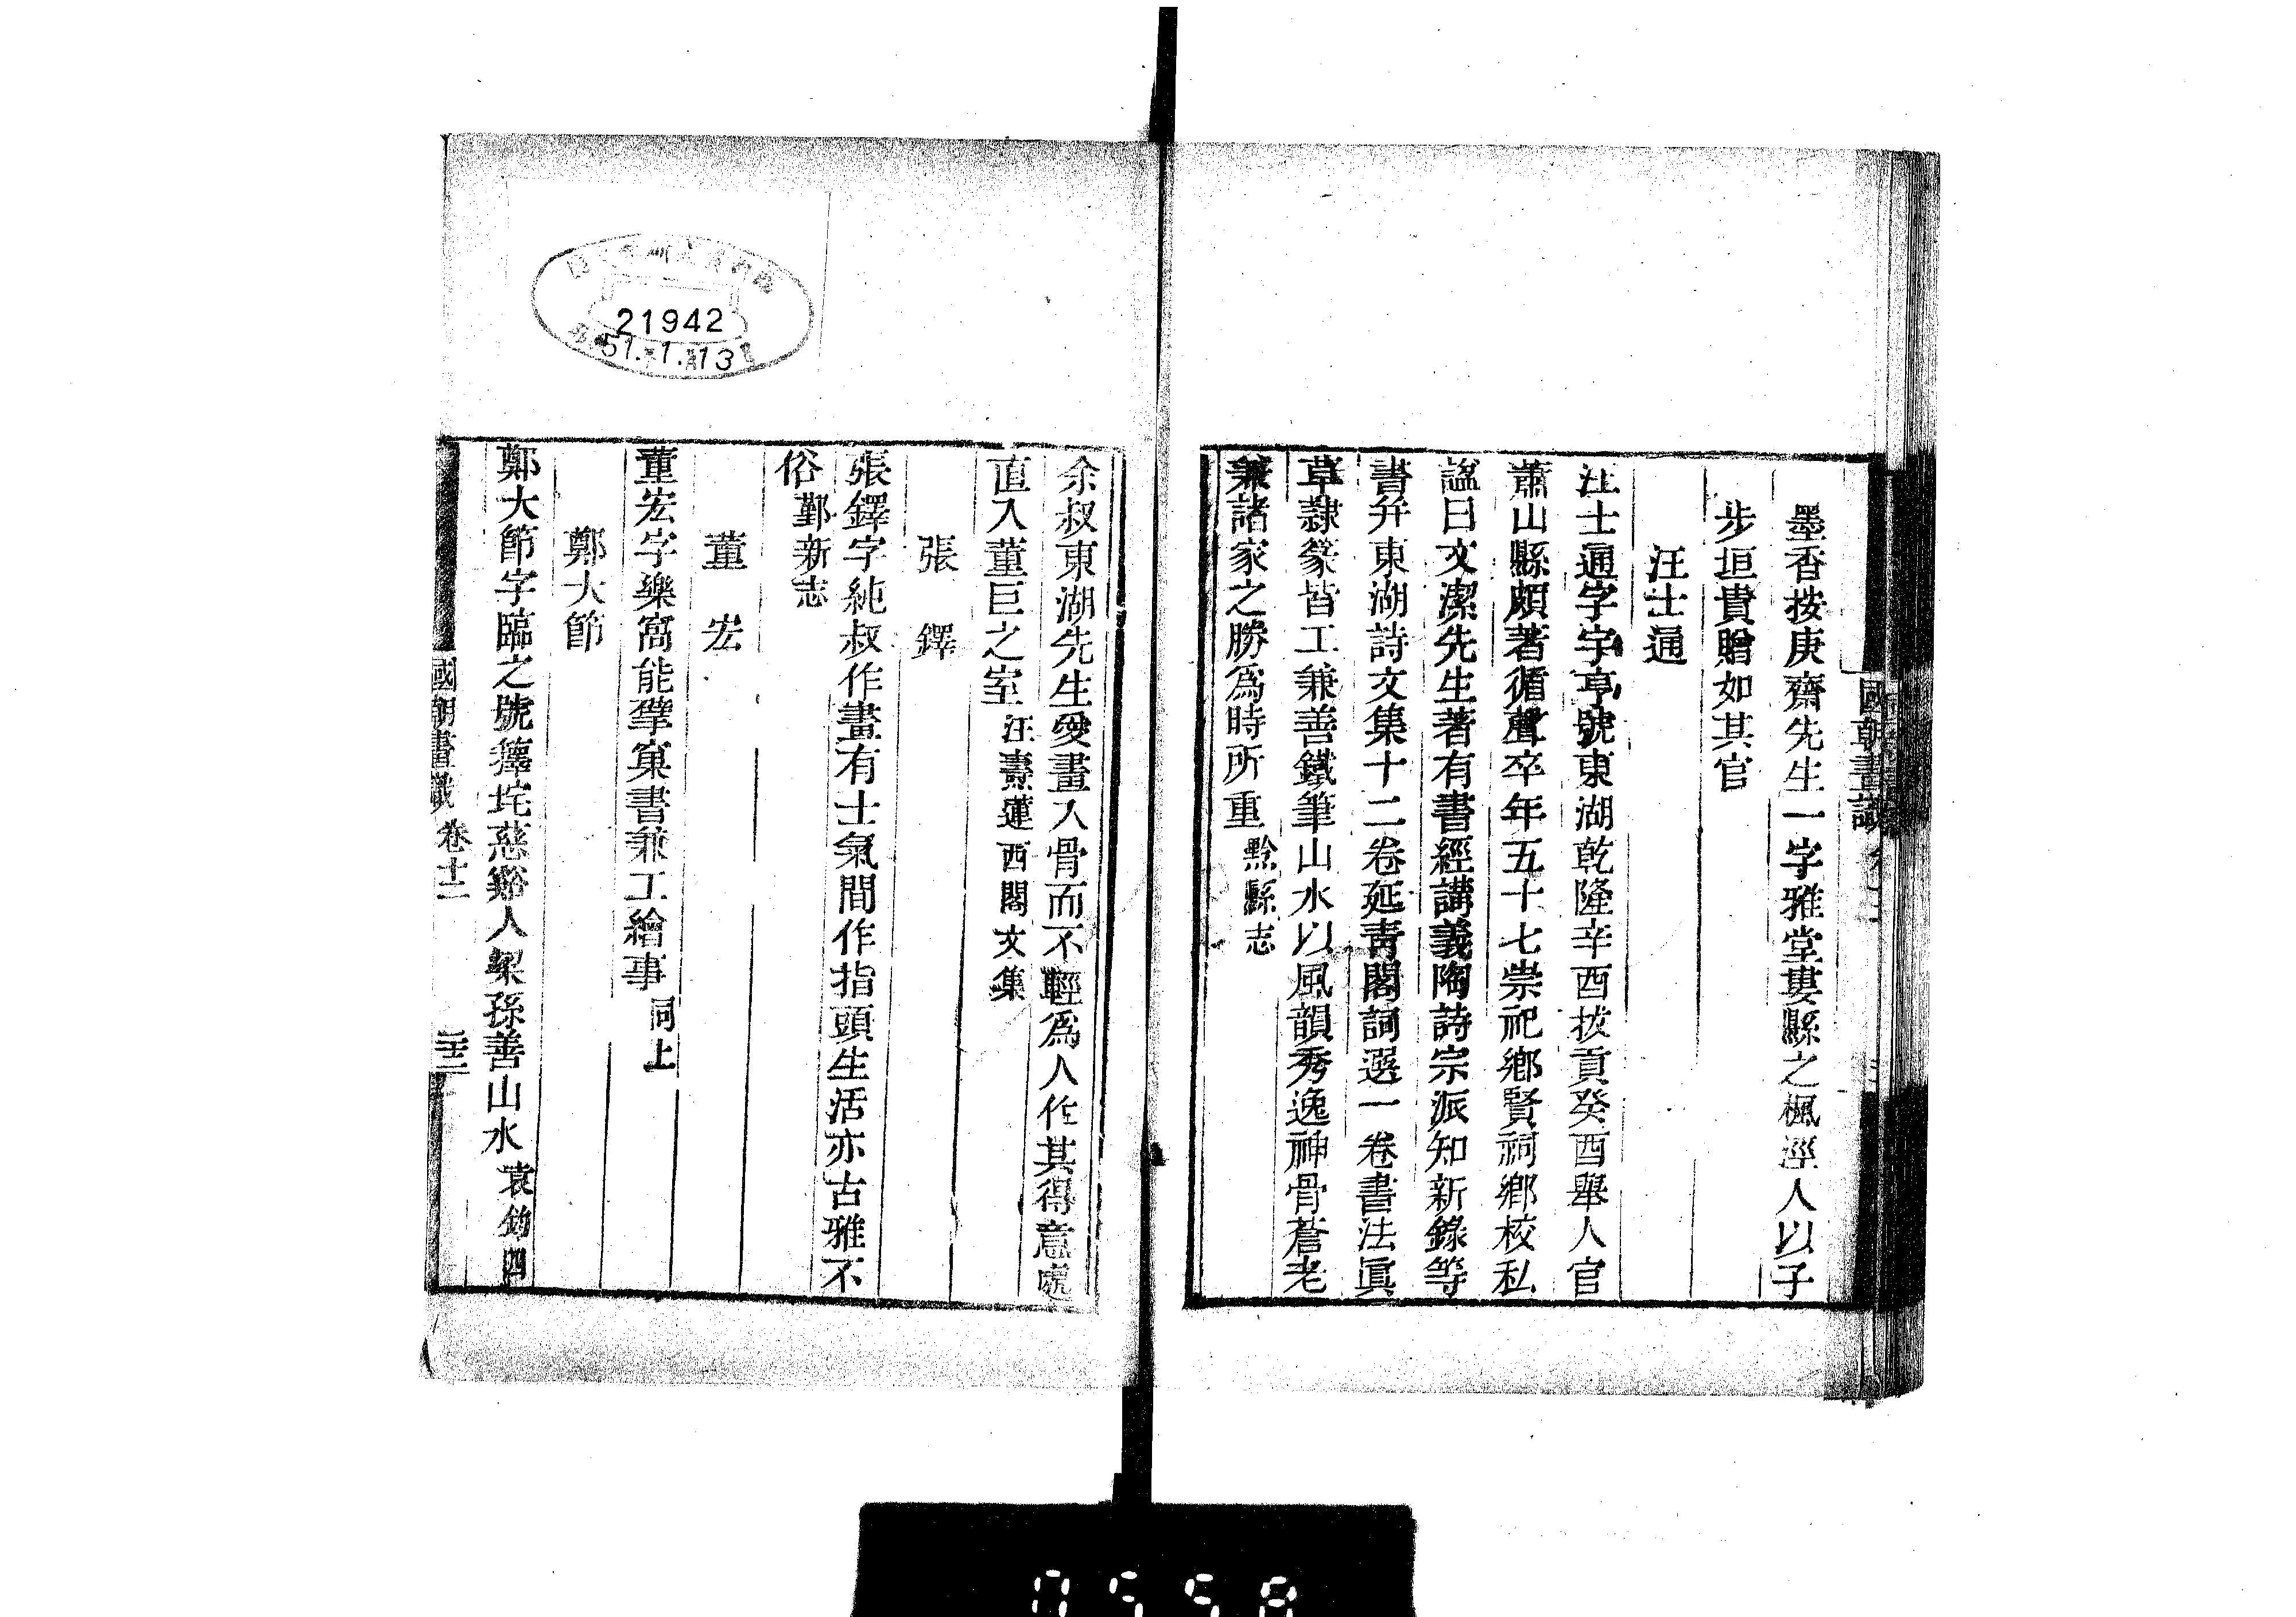 國朝畫識
墨香按庚齋先生一字雅堂婁縣之楓涇人以子
步垣貴贈如其官
汪士通
汪士通字宇亨號東湖乾隆辛酉拔貢癸酉舉人官
蕭山縣頗著循聲卒年五十七崇祀鄉賢祠鄉校私
諡曰文潔先生著有書經講義陶詩宗派知新錄等
書弁東湖詩文集十二卷延青閣詞選一卷書法眞
草隷篆皆工兼善鐵筆山水以風韻秀逸神骨蒼老
兼諸家之勝爲時所重 黟縣志
余叔東湖先生愛畫入骨而不輕爲人作其得意處
直入董巨之室 汪壽蓮西閣文集
張 鐸
張鐸字純叔作畫有士氣間作指頭生活亦古雅不
俗 鄞新志
董 宏
董宏字樂窩能擘窠書兼工繪事 同上
鄭大節
鄭大節字臨之號 垞慈谿人梁孫善山水 袁鈞四
國朝畫識 卷十二
21942
51.1.13